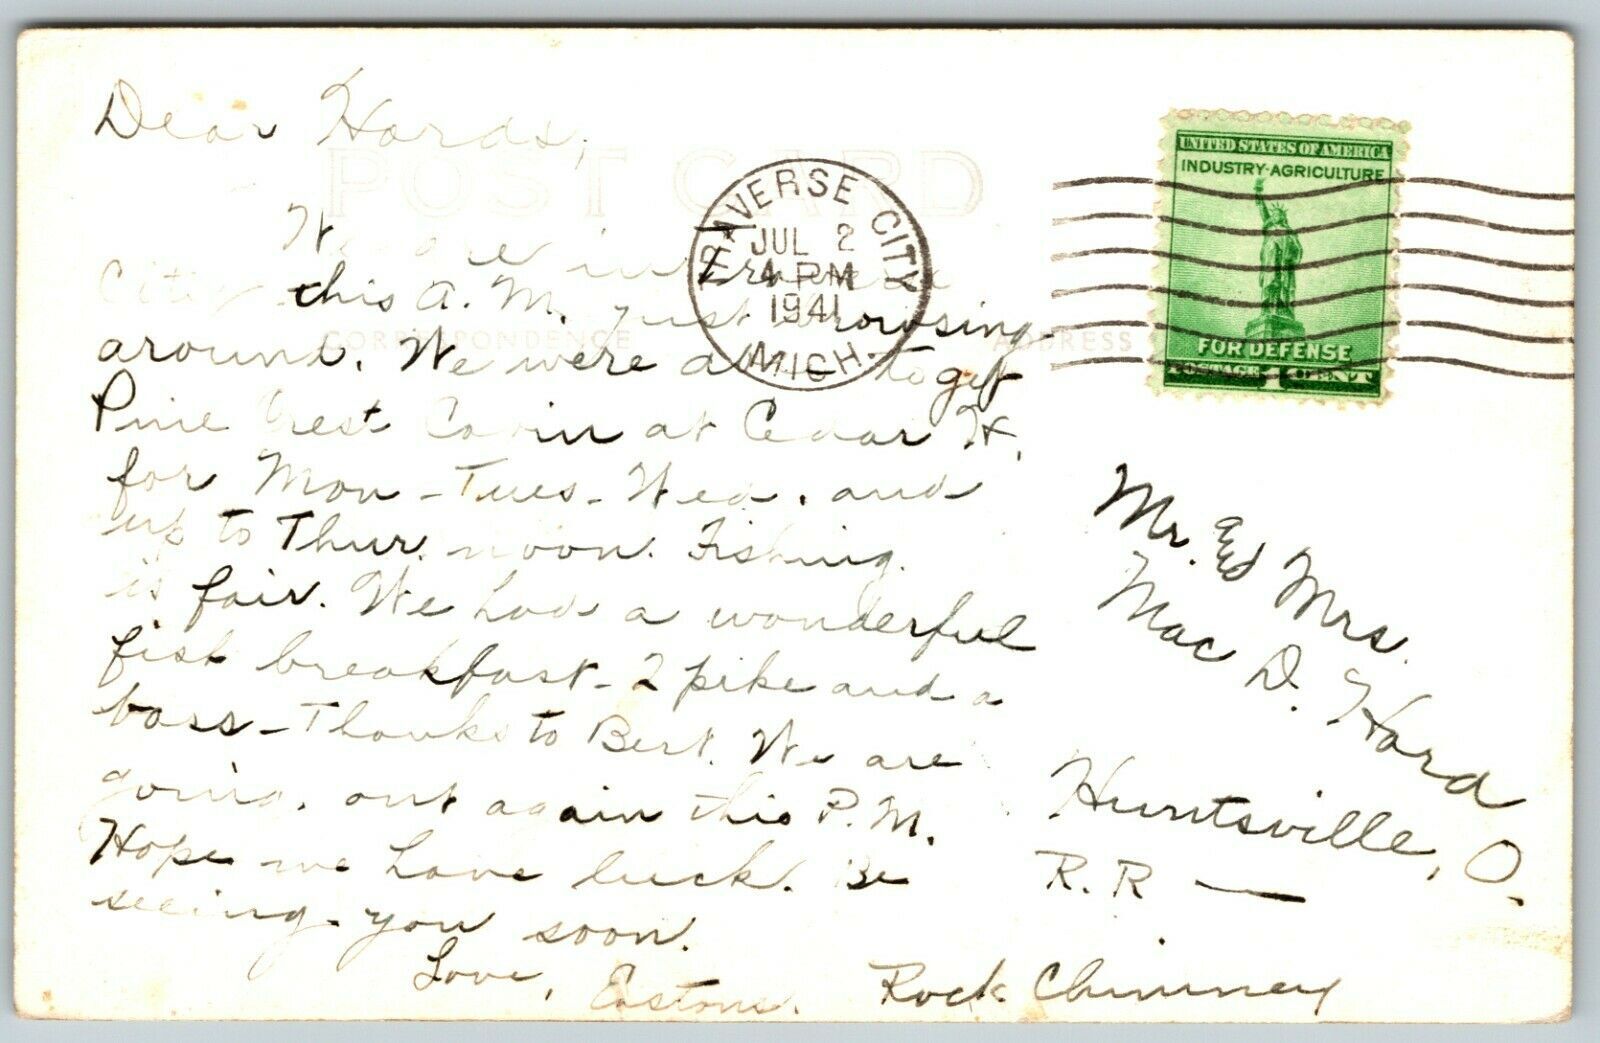 Dear Hords,
POST CARD
We are in Traverse
City this A.M. just browsing
around. We were able to get
Pine Crest Cabin at Cedar H.
for Mon - Tues - Wed. and
up to Thur. noon. Fishing
is fair. We had a wonderful
fish breakfast - 2 pike and a
bass - Thanks to Bert. We are
going, out again this P.M.
Hope we have luck. Be
seeing you soon.
Love, Eastons.
CORRESPONDENCE
ADDRESS
TRAVERSE CITY
JUL 2
4 PM
1941
MICH.
UNITED STATES OF AMERICA
INDUSTRY·AGRICULTURE
FOR DEFENSE
POSTAGE 1 CENT
Mr. and Mrs.
Mac D. Hord
Huntsville, O.
R.R —
Rock Chimney